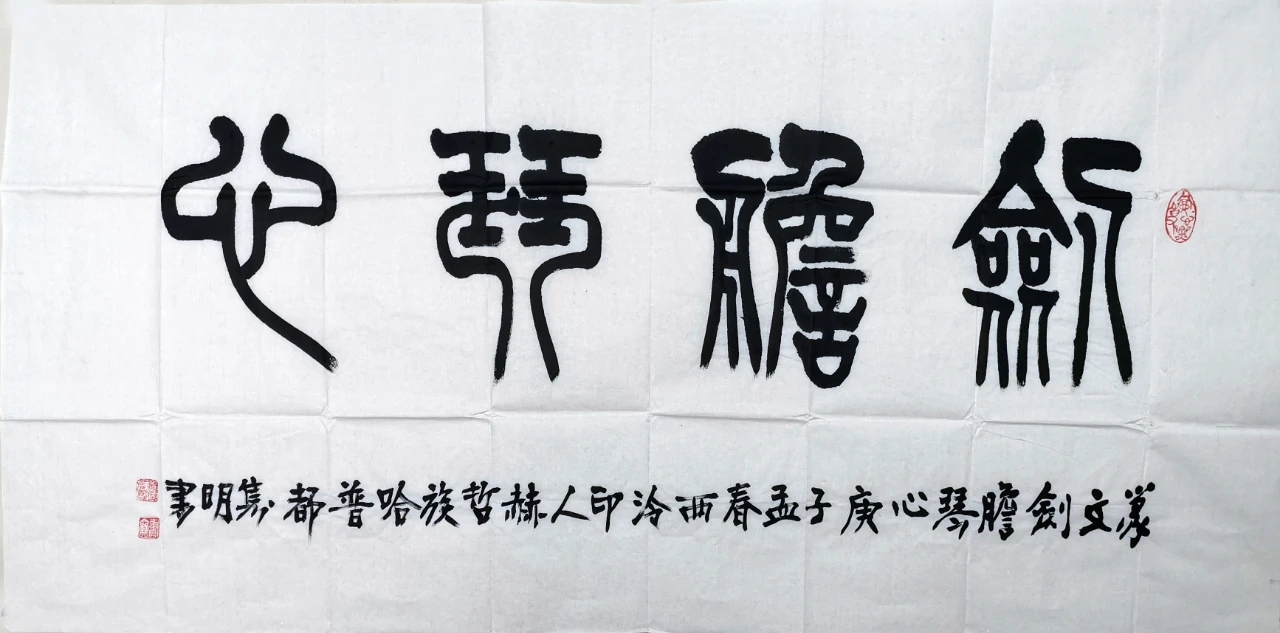 劍膽琴心
篆文劍膽琴心庚子孟春西泠印人赫哲族哈普都隽明書